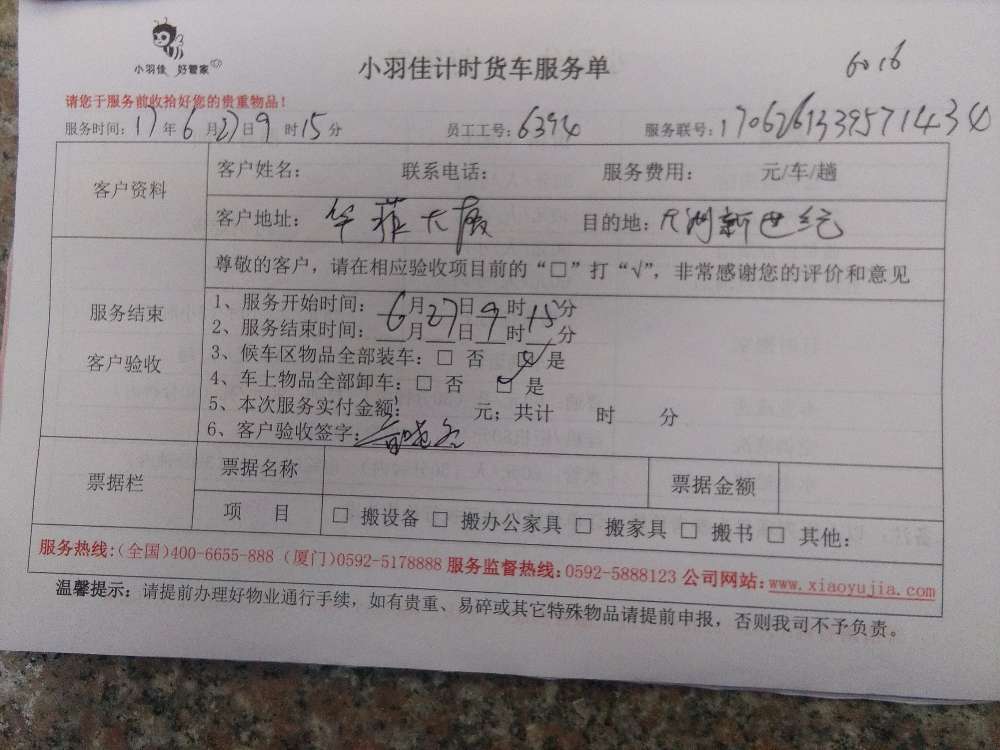 小羽佳 好管家
小羽佳计时货车服务单
6016
请您于服务前收拾好您的贵重物品！
服务时间：17年6月27日9时15分 员工工号：6394 服务联号：
客户资料
客户姓名： 联系电话： 服务费用： 元/车/趟
客户地址：华菲大厦 目的地：大洲新世纪
服务结束
客户验收
尊敬的客户，请在相应验收项目前的“□”打“√”，非常感谢您的评价和意见
1、服务开始时间：6月27日9时15分
2、服务结束时间： 月 日 时 分
3、候车区物品全部装车：□ 否 ☑ 是
4、车上物品全部卸车：□ 否 ☑ 是
5、本次服务实付金额： 元；共计 时 分
6、客户验收签字：
票据栏
票据名称 票据金额
项 目 □ 搬设备 □ 搬办公家具 □ 搬家具 □ 搬书 □ 其他：
服务热线:（全国）400-6655-888（厦门）0592-5178888 服务监督热线：0592-5888123 公司网站：www.xiaoyujia.com
温馨提示：请提前办理好物业通行手续，如有贵重、易碎或其它特殊物品请提前申报，否则我司不予负责。